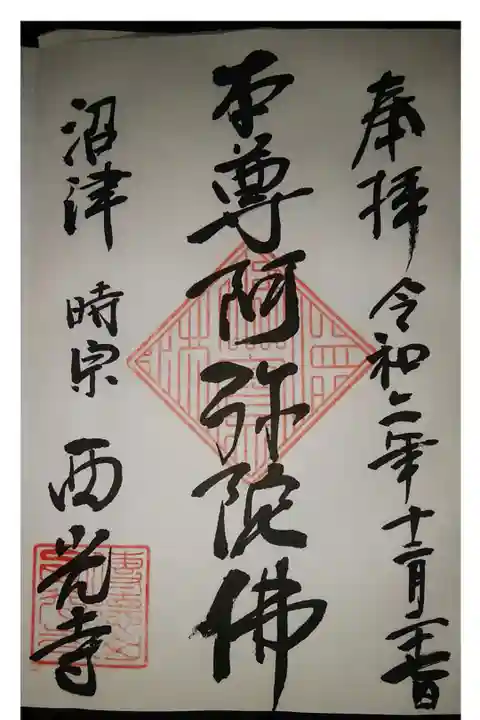 奉拝 令和二年十二月二十七日
本尊阿弥陀佛
沼津 時宗 西光寺